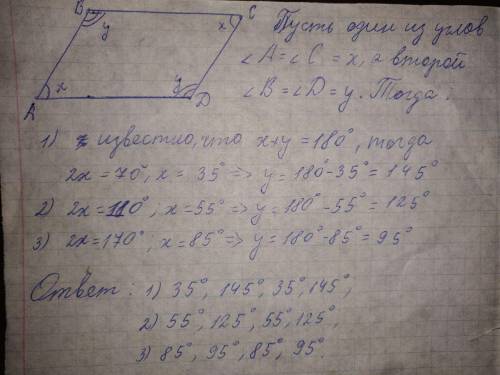 B
y
x
C
A
x
y
D
Пусть один из углов
∠A=∠C=x, а второй
∠B=∠D=y. Тогда:
1) известно, что x+y=180°, тогда
2x=70°, x=35° => y=180°-35°=145°
2) 2x=110°; x=55° => y=180°-55°=125°
3) 2x=170°, x=85° => y=180°-85°=95°
Ответ: 1) 35°, 145°, 35°, 145°,
2) 55°, 125°, 55°, 125°,
3) 85°, 95°, 85°, 95°.